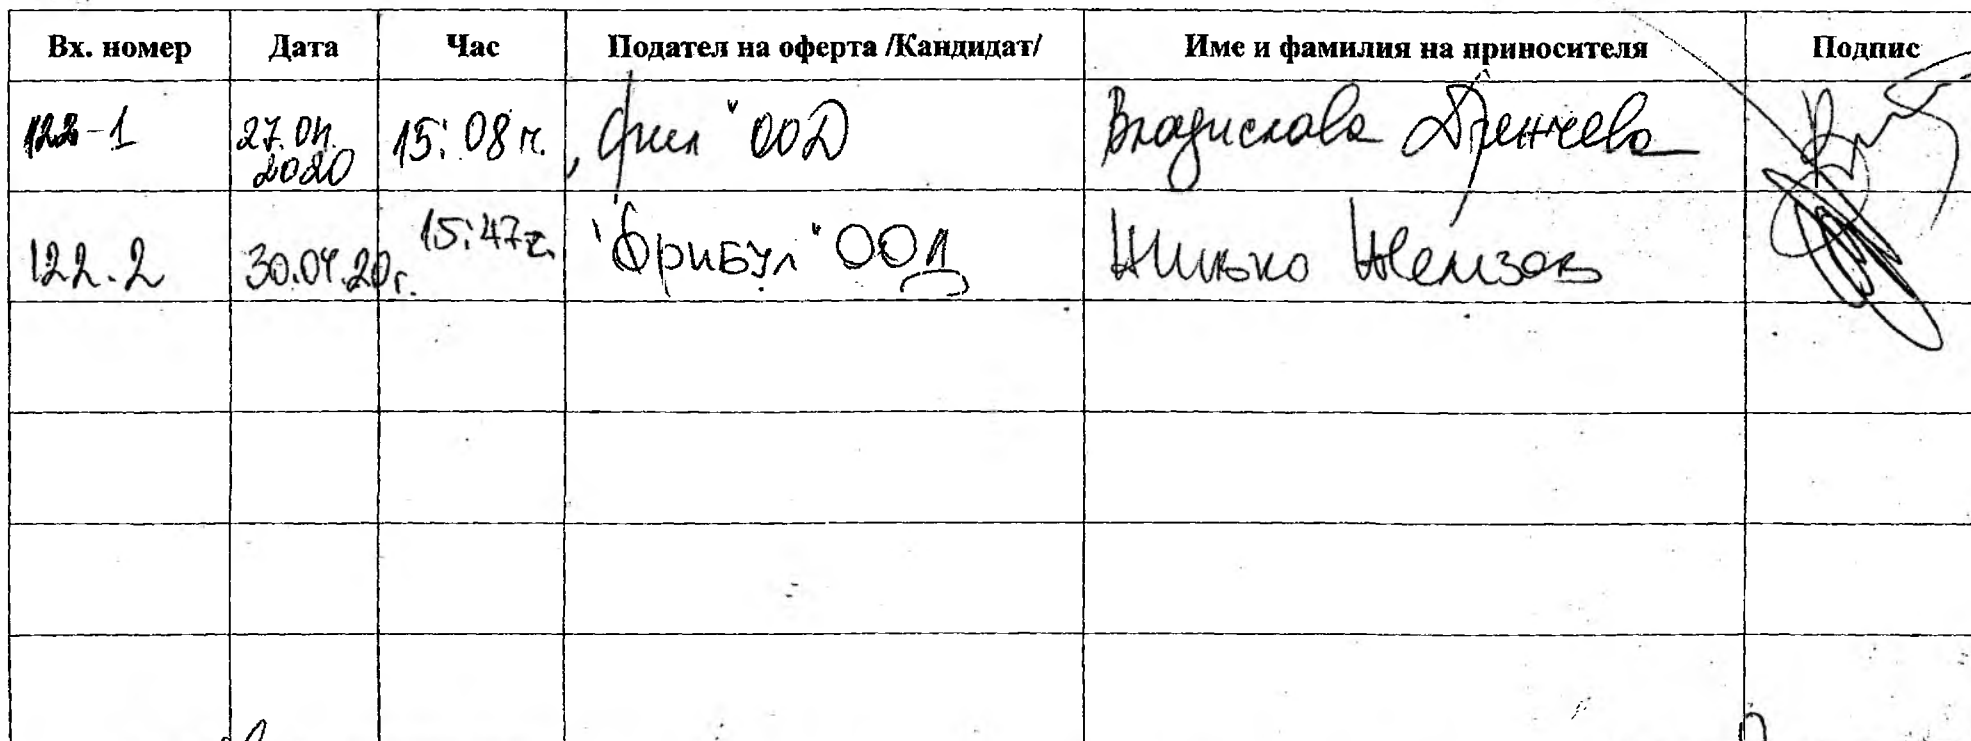 Вх. номер Дата Час Подател на оферта /Кандидат/ Име и фамилия на приносителя Подпис
122-1 27.04. 2020 15:08 ч. „Фил" ООД Владислава Дренчева
122.2 30.04.20г. 15:47г. "Фрибул" ООД